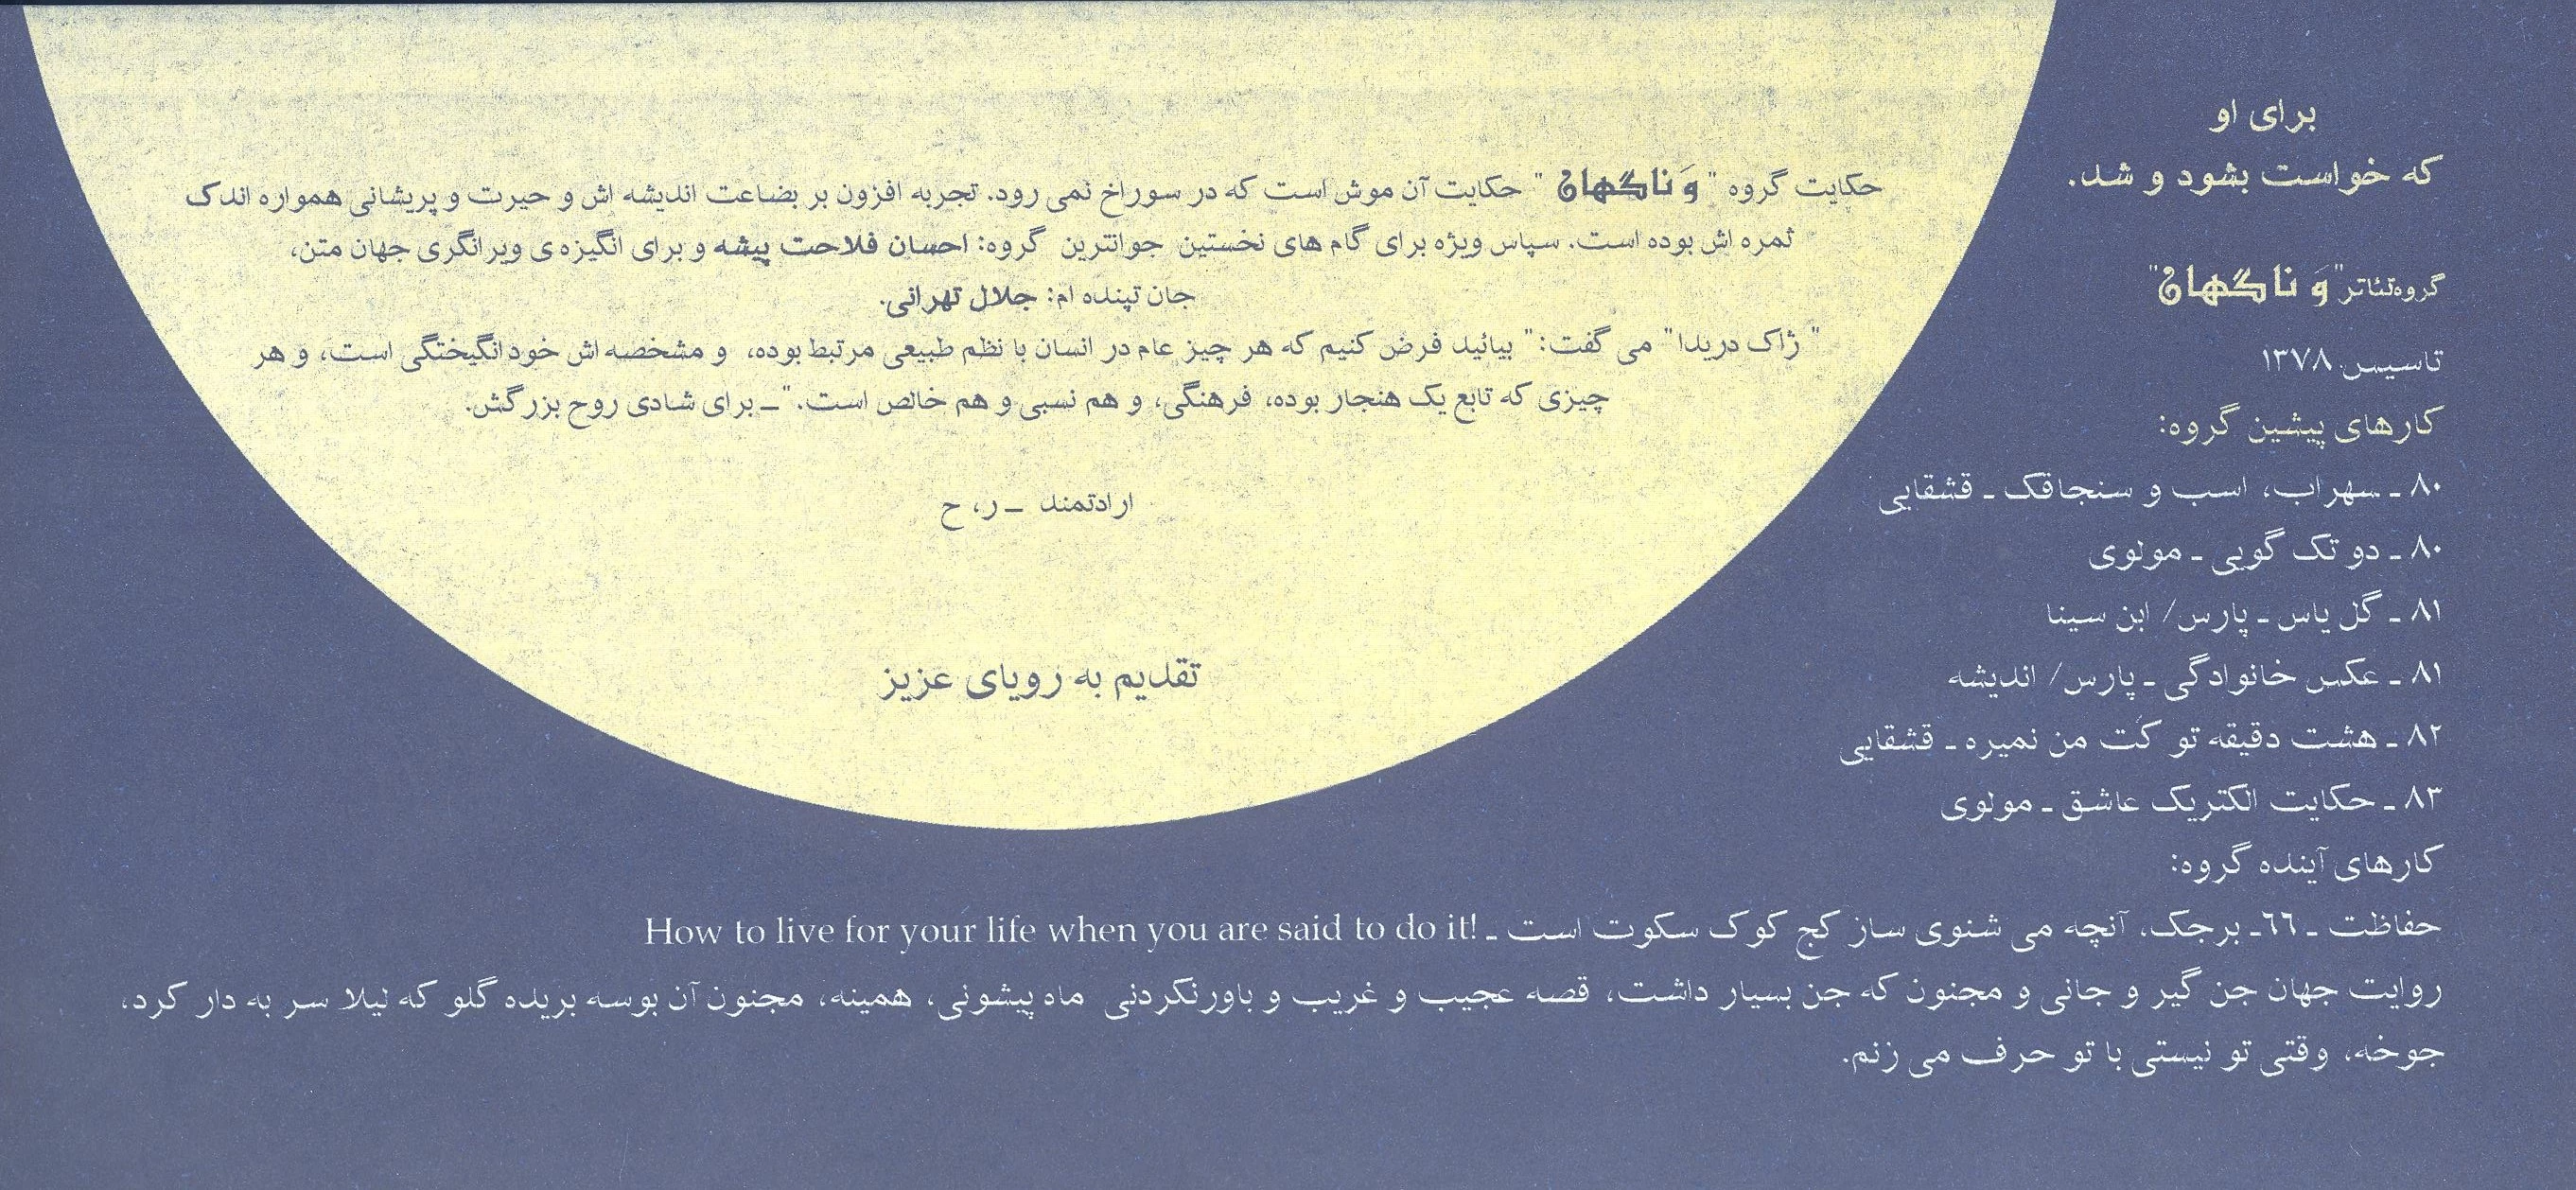 برای او
که خواست بشود و شد.
گروه تئاتر "وَ ناگهان"
تاسیس ۱۳۷۸
کارهای پیشین گروه:
۸۰ ـ سهراب، اسب و سنجاقک ـ قشقایی
۸۰ ـ دو تک گویی ـ مولوی
۸۱ ـ گل یاس ـ پارس/ ابن سینا
۸۱ ـ عکس خانوادگی ـ پارس/ اندیشه
۸۲ ـ هشت دقیقه تو کت من نمیره ـ قشقایی
۸۳ ـ حکایت الکتریک عاشق ـ مولوی
کارهای آینده گروه:
حفاظت ـ ٦٦ـ برجک، آنچه می شنوی ساز کج کوک سکوت است ـ How to live for your life when you are said to do it!
روایت جهان جن گیر و جانی و مجنون که جن بسیار داشت، قصه عجیب و غریب و باورنکردنی ماه پیشونی، همینه، مجنون آن بوسه بریده گلو که لیلا سر به دار کرد،
جوخه، وقتی تو نیستی با تو حرف می زنم.
حکایت گروه " وَ ناگهان " حکایت آن موش است که در سوراخ نمی رود. تجربه افزون بر بضاعت اندیشه اش و حیرت و پریشانی همواره اندک
ثمره اش بوده است. سپاس ویژه برای گام های نخستین جوانترین گروه: احسان فلاحت پیشه و برای انگیزه ی ویرانگری جهان متن،
جان تپنده ام: جلال تهرانی.
" ژاک دریدا" می گفت:" بیائید فرض کنیم که هر چیز عام در انسان با نظم طبیعی مرتبط بوده، و مشخصه اش خودانگیختگی است، و هر
چیزی که تابع یک هنجار بوده، فرهنگی، و هم نسبی و هم خالص است."ـ برای شادی روح بزرگش.
ارادتمند ـ ر، ح
تقدیم به رویای عزیز